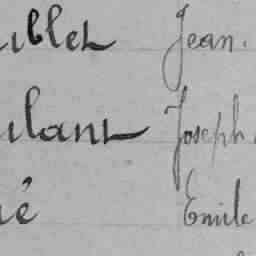 ublet Jean.
ulant Joseph
é Emile